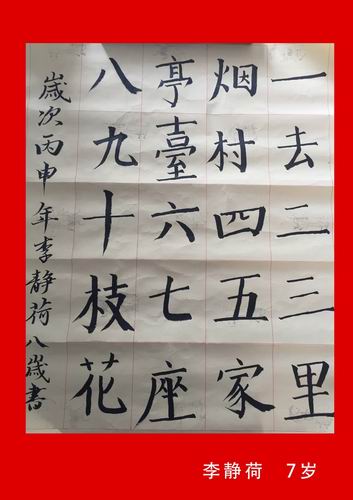 一去二三里
烟村四五家
亭臺六七座
八九十枝花
嵗次丙申年李静荷八嵗書
李静荷 7岁